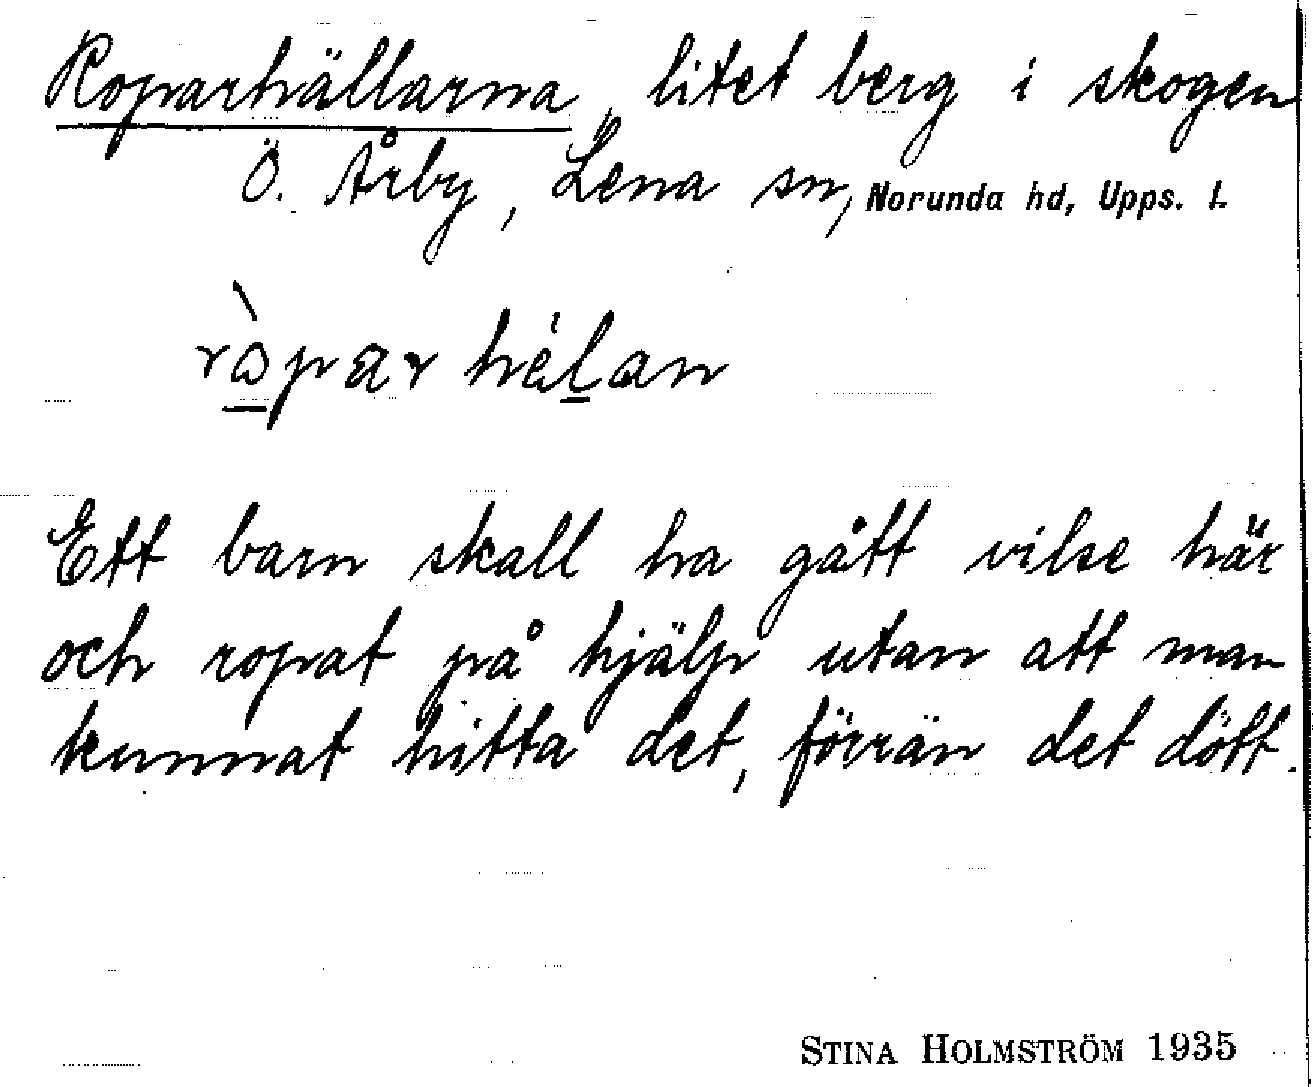 Roparhällarna, litet berg i skogen
Ö. Årby, Lena sn, Norunda hd, Upps. l.
ròpar hélan
Ett barn skall ha gått vilse här
och ropat på hjälp utan att man
kunnat hitta det, förrän det dött.
STINA HOLMSTRÖM 1935